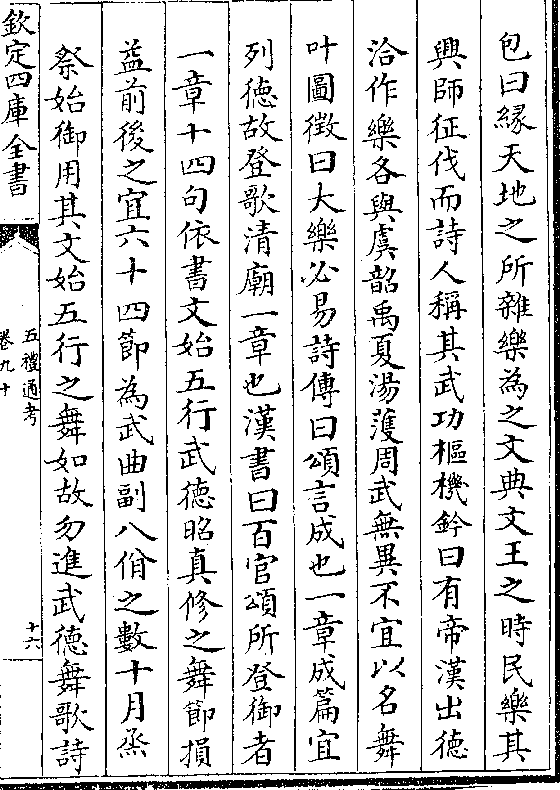 包曰緣天地之所雜樂為之文典文王之時民樂其
興師征伐而詩人稱其武功樞機鈐曰有帝漢出德
洽作樂各與虞韶禹夏湯頀周武無異不宜以名舞
叶圖徵曰大樂必易詩傳曰頌言成也一章成篇宜
列德故登歌清廟一章也漢書曰百官頌所登御者
一章十四句依書文始五行武德昭真修之舞節損
益前後之宜六十四節為武曲副八佾之數十月烝
祭始御用其文始五行之舞如故勿進武德舞歌詩
欽定四庫全書
五禮通考
卷九十
十六